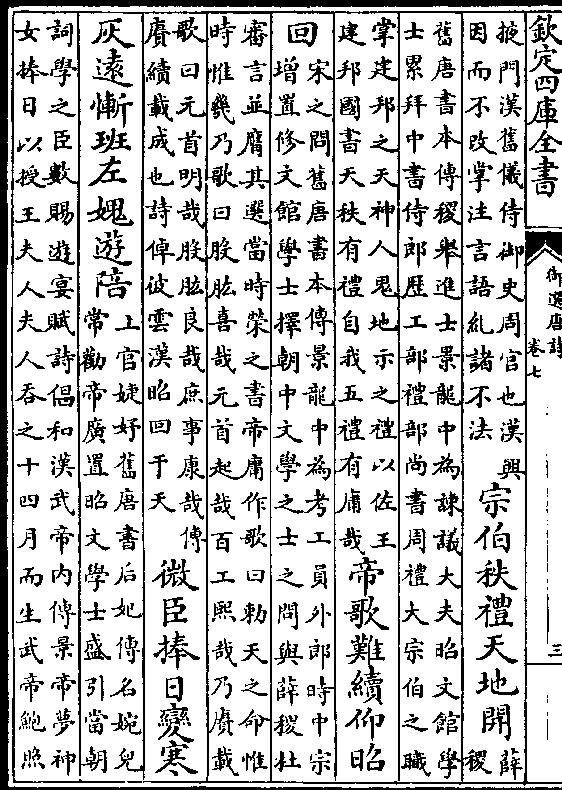 欽定四庫全書
御選唐詩
卷七
三
掖門漢舊儀侍御史周官也漢興
因而不改掌注言語糺諸不法
宗伯秩禮天地開
薛
稷
舊唐書本傳稷舉進士景龍中為諫議大夫昭文館學
士累拜中書侍郎歷工部禮部尚書周禮大宗伯之職
掌建邦之天神人鬼地示之禮以佐王
建邦國書天秩有禮自我五禮有庸哉
帝歌難續仰昭
回
宋之問舊唐書本傳景龍中為考工員外郎時中宗
增置修文館學士擇朝中文學之士之問與薛稷杜
審言並膺其選當時榮之書帝庸作歌曰勅天之命惟
時惟幾乃歌曰股肱喜哉元首起哉百工熙哉乃賡載
歌曰元首明哉股肱良哉庶事康哉傳
賡續載成也詩倬彼雲漢昭回于天
微臣捧日變寒
灰遠慚班左媿遊陪
上官婕妤舊唐書后妃傳名婉兒
常勸帝廣置昭文學士盛引當朝
詞學之臣數賜遊宴賦詩倡和漢武帝内傳景帝夢神
女捧日以授王夫人夫人吞之十四月而生武帝鮑照